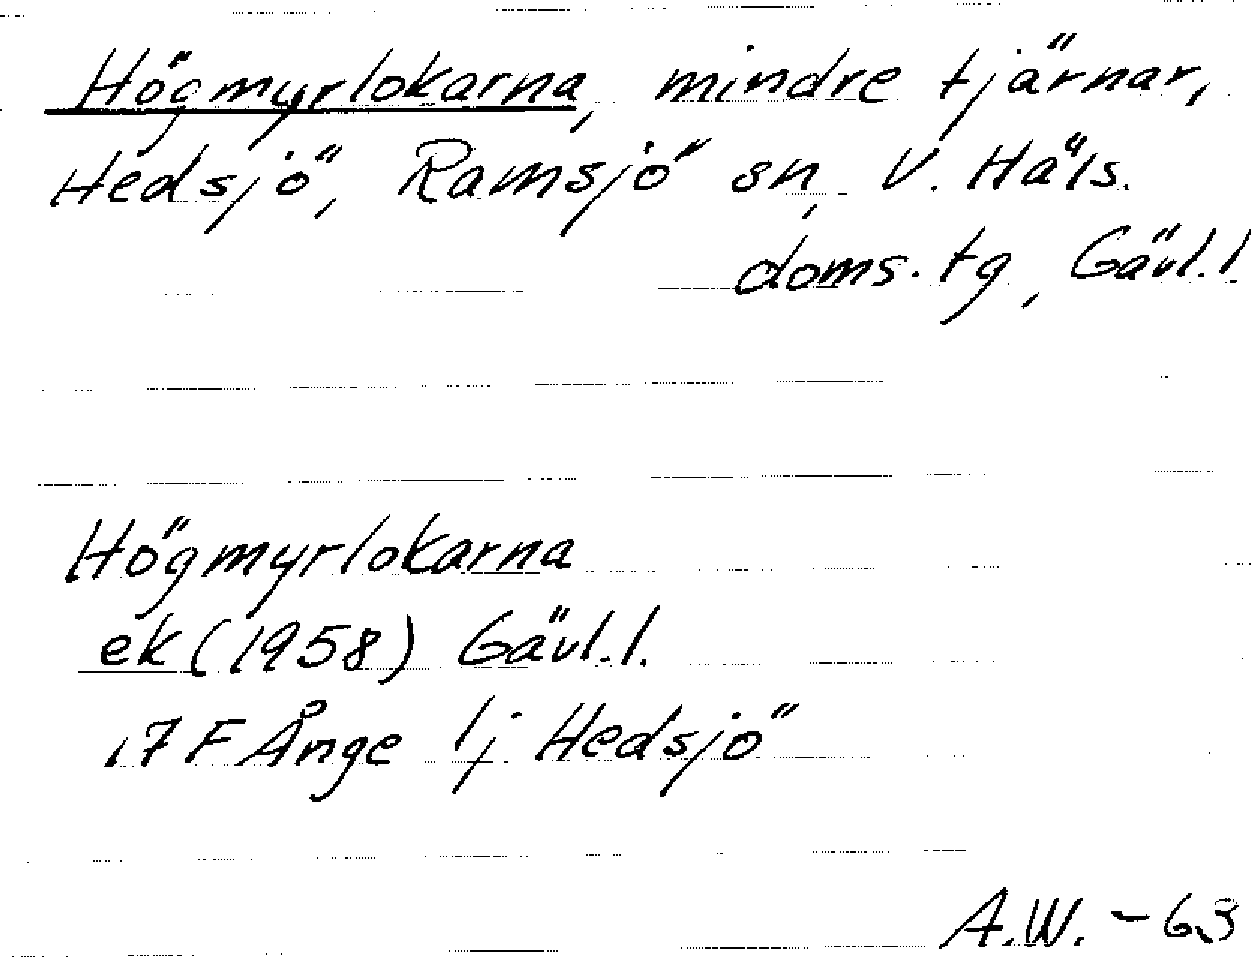 Högmyrlokarna, mindre tjärnar,
Hedsjö, Ramsjö sn, V. Häls.
doms. tg, Gävl.l.
Högmyrlokarna
ek (1958) Gävl.l.
17 F Ånge 1j Hedsjö
A.W. - 63